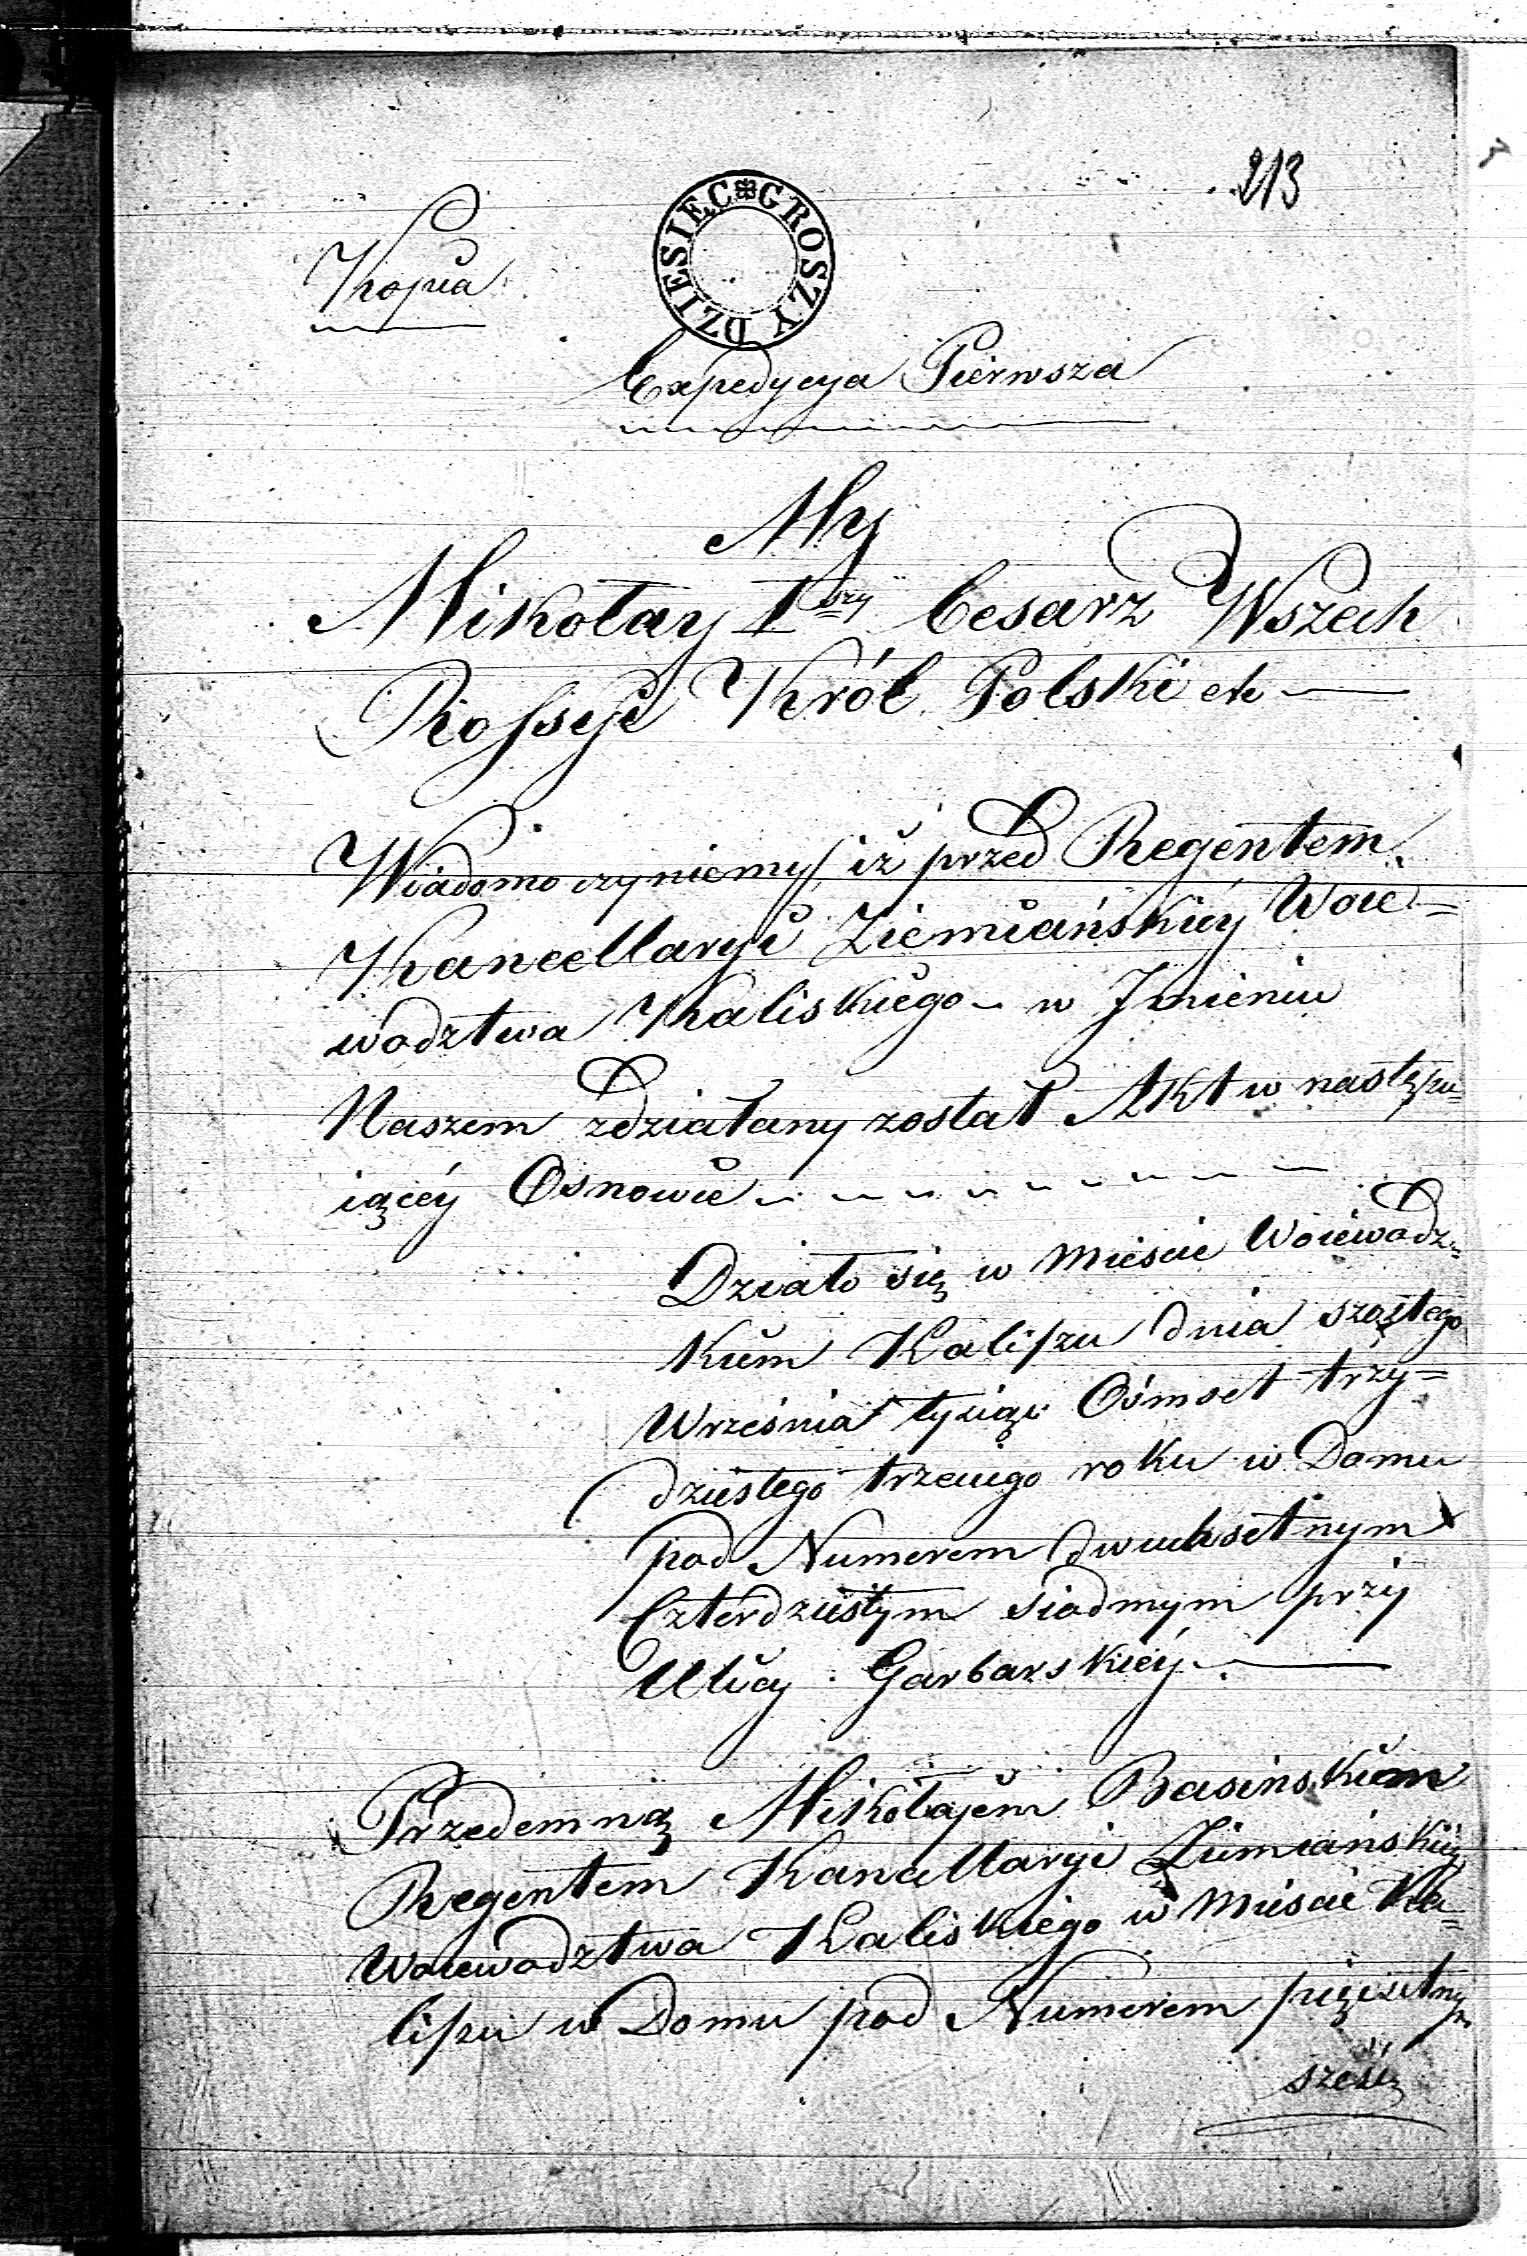 213
Kopia
DZIESIEC GROSZY
Expedycya Pierwsza
My
Mikołay 1szy Cesarz Wszech
Rossyi Król Polski etc
Wiadomo czyniemy, iż przed Regentem
Kancellaryi Ziemiańskiéy Woie=
wodztwa Kaliskiego w Jmieniu
Naszem zdziałany został Akt w następu=
iącéy Osnowie
Działo się w Mieście Woiewodz=
kiem Kaliszu dnia szostego
Września tysiąc Ośmset trzy=
dziestego trzeciego roku w Domu
pod Numerem dwuchsetnym
Czterdziestym siodmym przy
Ulicy Garbarskiéy
Przedemną Mikołajem Basińskiem
Regentem Kancellaryi Ziemiańskiéy
Woiewodztwa Kaliskiego w Mieście Ka=
liszu w Domu pod Numerem pięćsetnym
sześć